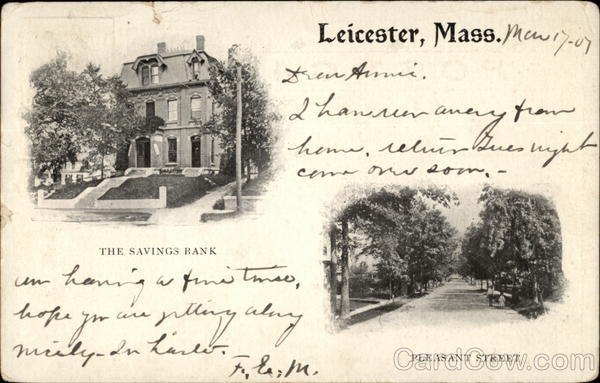 Leicester, Mass. Mar 17-07
Dear Annie.
I have run away from
home. return Tues night
come over soon. -
THE SAVINGS BANK
am having a fine time,
hope you are getting along
nicely - In haste.
F. E. M.
PLEASANT STREET
CardCow.com